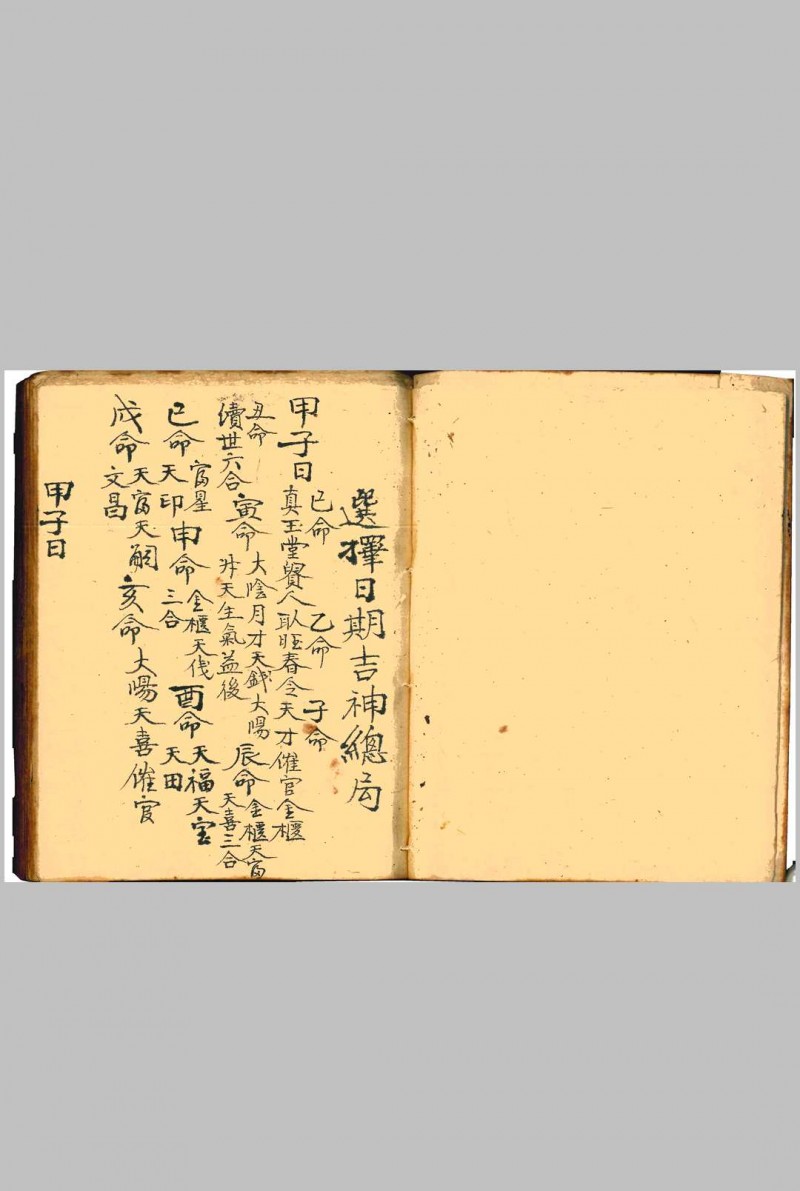 選擇日期吉神總局
甲子日
己命 乙命 子命
真玉堂貴人 馭旺春令天才催官金櫃
丑命
續世六合
寅命
大陰月才天錢大陽
升天生氣益後
辰命
金櫃天富
天喜三合
巳命
富星
天印
申命
金櫃天伐
三合
酉命
天福天宝
天田
戌命
天富天嗣
文昌
亥命
大陽天喜催官
甲子日